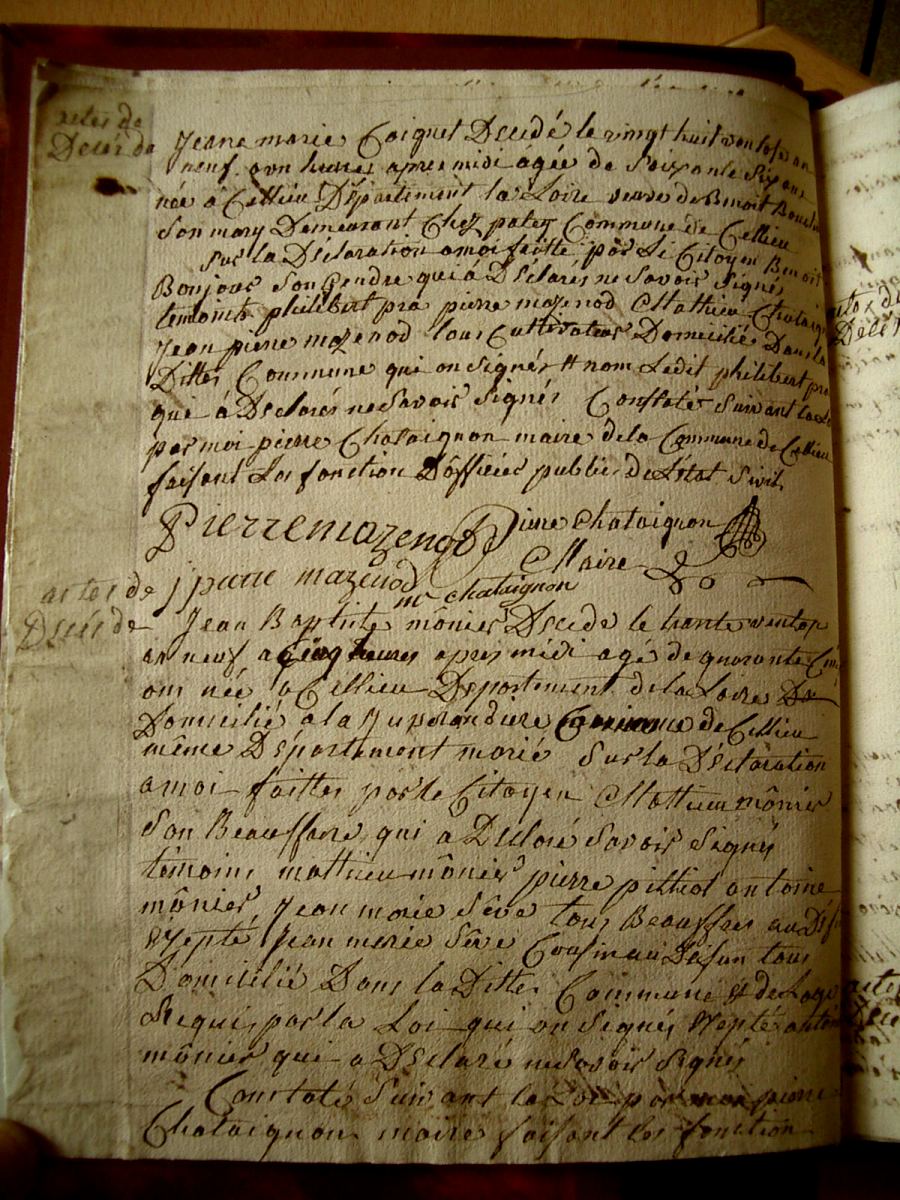 actes de
Décés de
Jeane marie Coignet Décédé le vingt huit vantose an
neuf a un heures apres midi agée de Soixante Six ans
née à Cellieu Département la Loire veuve de Benoit
Son mary Demeurant Chez pater Commune de Cellieu
Sur la Déclaration a moi faitte par le Citoyen Benoit
Bonjour Son Gendre qui a Déclares ne Savoir Signé
temoints philibert pra pierre mazenod Mathieu Chataig
Jean pierre mazenod tous Cultivateur Domicilié Dans la
Dittes Commune qui on Signés et nom Ledit philibert pra
qui à Déclarés ne Savoir Signés Constaté Suivant la Loi
par moi pierre Chataignon maire de la Commune de Cellieu
faisant Les fonction D'officier publics de L'état Sivil
Pierre mazenod Pierre Chataignon
Maire
j pierre mazenod
mr chataignon
actes de
Décés de
Jean Baptiste mônier Décédé le trante ventos
an neuf a Cinq heures apres midi agé de quarante Cinq
ans née a Cellieu Département de la Loire De
Domicilié a la Commune de Cellieu
même Département marié Sur la Déclaration
a moi faittes par le Citoyen Mathieu mônier
Son Beauffrere qui a Déclaré Savoir Signés
temoins mathieu mônier pierre pitiot antoine
mônier Jean marie Sêve tous Beauffres au Déf
Exepté Jean marie Sêve Cousin au Défun tous
Domicilié Dans la Dittes Commune et de Lage
Requis par la Loi qui on Signés Exepté antoi
mônier qui a Déclaré ne Savoir Signés
Constaté Suivant la Loi par moi pierre
Chataignon maire faisant les fonction
actes de
Décés
actes